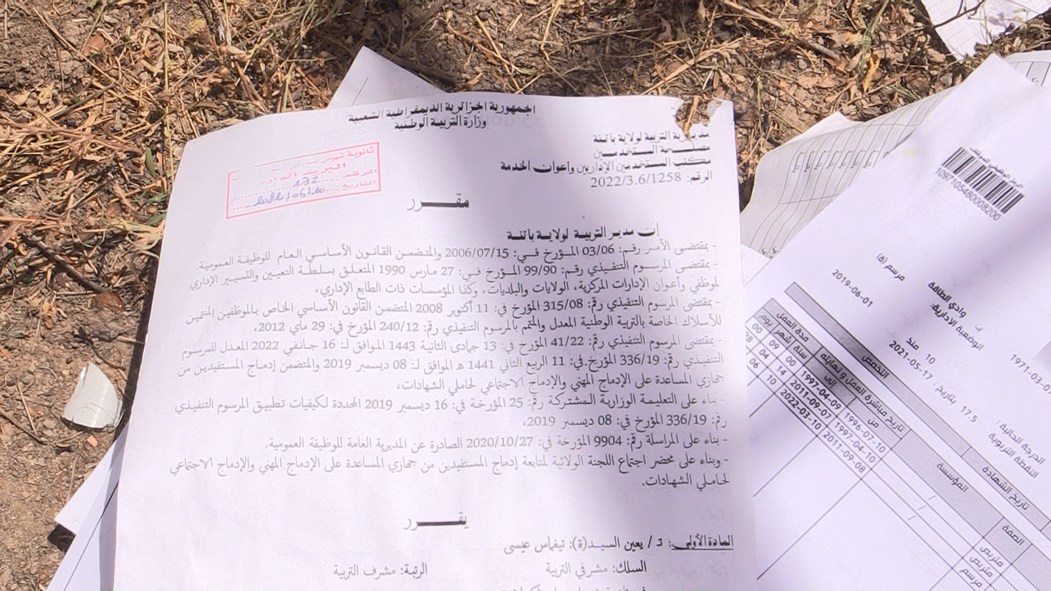 الجمهورية الجزائرية الديمقراطية الشعبية
وزارة التربية الوطنية
مديرية التربية لولاية باتنة
مصلحة المستخدمين
مكتب المستخدمين الإداريين وأعوان الخدمة
الرقم: 2022/3.6/1258
مقـــرر
إن مدير التربية لولاية باتنة
- بمقتضى الأمر رقم: 03/06 المؤرخ في: 2006/07/15 والمتضمن القانون الأساسي العام للوظيفة العمومية.
- بمقتضى المرسوم التنفيذي رقم: 99/90 المؤرخ في: 27 مارس 1990 المتعلق بسلطة التعيين والتسيير الإداري
لموظفي وأعوان الإدارات المركزية، الولايات والبلديات، وكذا المؤسسات ذات الطابع الإداري،
- بمقتضى المرسوم التنفيذي رقم: 315/08 المؤرخ في: 11 أكتوبر 2008 المتضمن القانون الأساسي الخاص بالموظفين المنتمين
للأسلاك الخاصة بالتربية الوطنية المعدل والمتمم بالمرسوم التنفيذي رقم: 240/12 المؤرخ في: 29 ماي 2012،
- بمقتضى المرسوم التنفيذي رقم: 41/22 المؤرخ في: 13 جمادى الثانية 1443 الموافق لـ: 16 جانفي 2022 المعدل للمرسوم
التنفيذي رقم: 336/19 المؤرخ في: 11 الربيع الثاني 1441 هـ الموافق لـ: 08 ديسمبر 2019 والمتضمن إدماج المستفيدين من
جهازي المساعدة على الإدماج المهني والإدماج الاجتماعي لحاملي الشهادات،
- بناء على التعليمة الوزارية المشتركة رقم: 25 المؤرخة في: 16 ديسمبر 2019 المحددة لكيفيات تطبيق المرسوم التنفيذي
رقم: 336/19 المؤرخ في: 08 ديسمبر 2019،
- بناء على المراسلة رقم: 9904 المؤرخة في: 2020/10/27 الصادرة عن المديرية العامة للوظيفة العمومية.
- وبناء على محضر اجتماع اللجنة الولائية لمتابعة إدماج المستفيدين من جهازي المساعدة على الإدماج المهني والإدماج الاجتماعي
لحاملي الشهادات.
يقـــرر
المادة الأولى: تـ / يعين السيد(ة): تيغماس عيسى
السلك: مشرفي التربية الرتبة: مشرف التربية
1097105480008200
مرسم (ة)
بـ وادي الطاقة
الوضعية الإدارية:
2019-06-01
1971-03-0
10 منذ
2021-05-17
الدرجة الحالية:
النقطة التربوية 17.5 بتاريخ:
تاريخ الشهادة
التخصص
المؤسسة
الصفة
تاريخ مباشرة العمل و نهايته
مدة العمل
من
إلى
سنة شهر يوم
1996-07-10 1997-04-09
1997-04-10 2011-09-07
2011-09-08 2022-03-10
متربص
متربص
مرسم